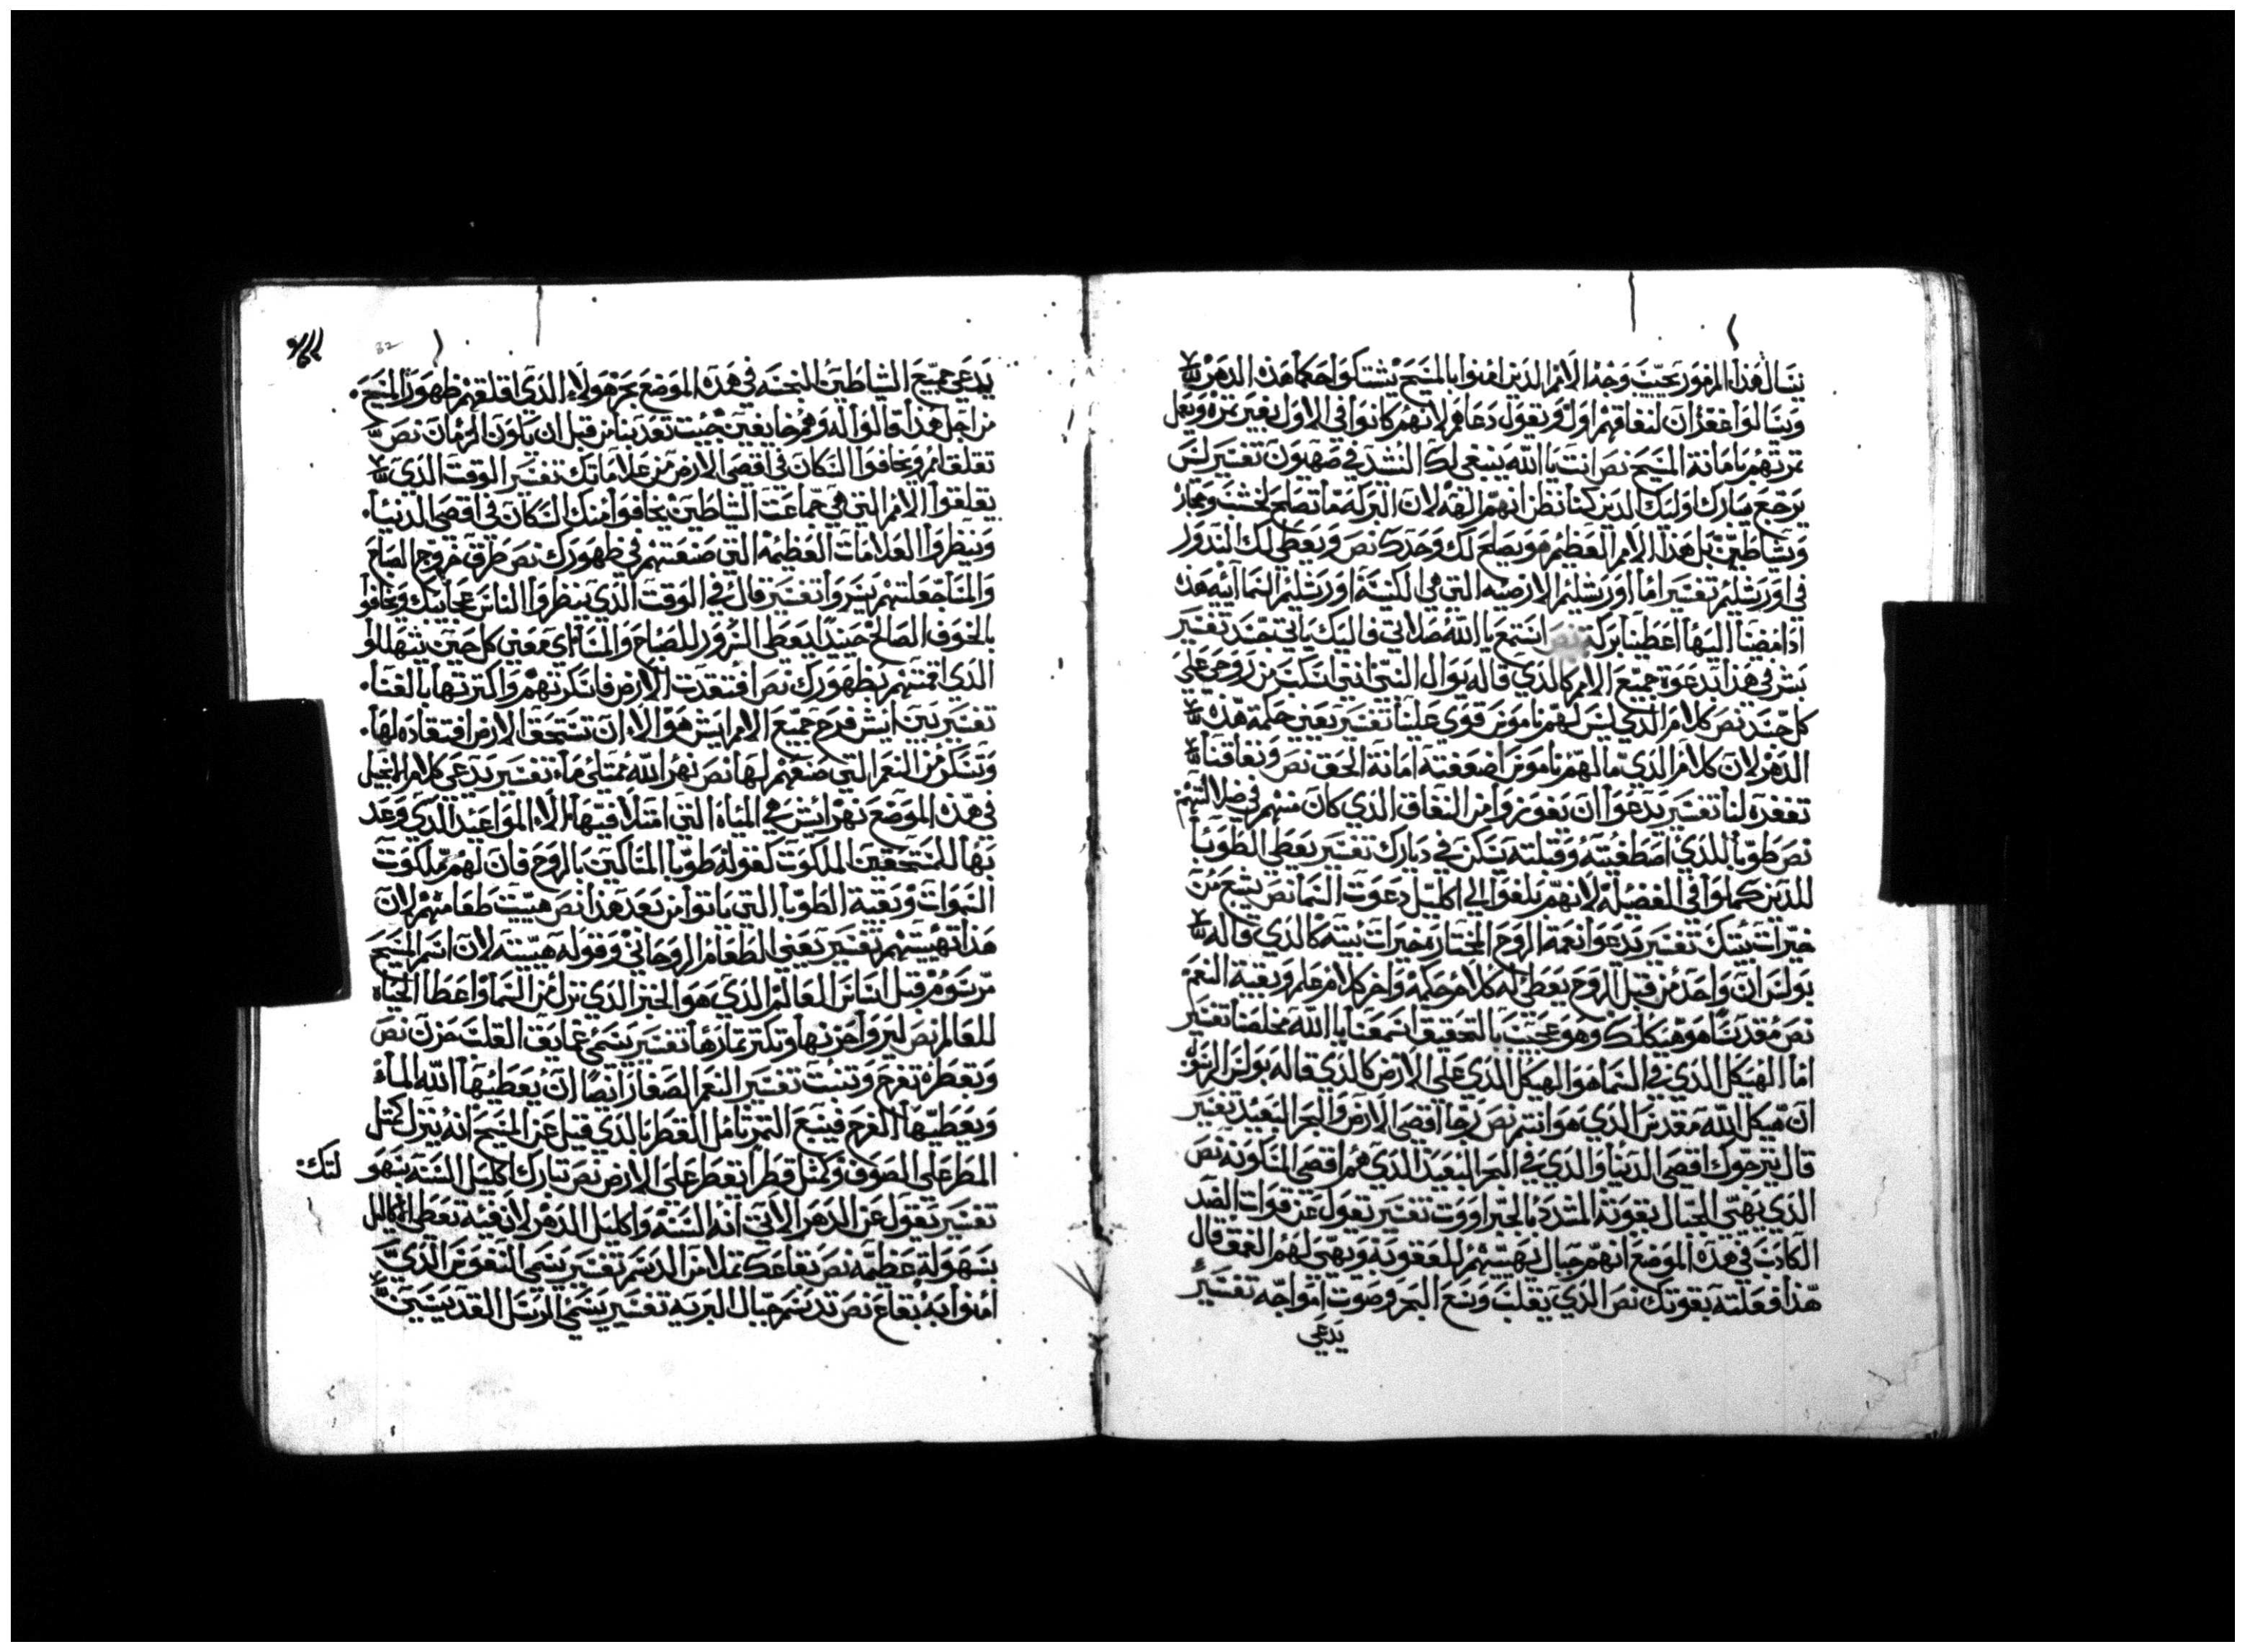 يتنا لهذا المزمور يجيب وجه الامم الذين امنوا بالمسيح يشتكوا حكما هذه الدهر
ويسالوا غفران لنفاقهم اول ويقول دعاهم لانهم كانوا في الاول بغير ثمره ويعمل
ثمرتهم بامانة المسيح نص انت يا الله ينبغي لك النشد في صهيون تفسير ليس
يرجع يبارك اوليك الذين كنا نظن انهم الهه لان البركه ما تصلح لخشب وحجاره
وشياطين بل هذا الامر العظيم هو يصلح لك وحدك نص ويعطي لك الندور
في اورشليم تفسير اما اورشليم الارضيه التي هي الكنيسة اورشليم السمآئيه هذه
اذا مضينا اليها اعطينا بركة نص استمع يا الله صلاتي فاليك ياتي كل جسد تفسير
بشر في هذا بدعوة جميع الامم كالذي قاله يوال النبي انني اسكب من روحي على
كل جسد نص كلام الذي ليس لهم ناموس قوي علينا تفسير يعني حكمة هذه
الدهر لان كلام الذي ما لهم ناموس اضعفته امانة الحق نص ونفاقنا
تغفره لنا تفسير يدعوا ان يفوزوا من النفاق الذي كان منهم في ضلالتهم
نص طوبا للذي اصطفيته وقبلته يسكن في ديارك تفسير يعطي الطوبا
للذين كملوا في الفضيله لانهم بلغوا الى اكليل دعوت السما نص يشبع من
خيرات بيتك تفسير يدعوا نعمة الروح المختاره خيرات بيته كالذي قاله
بولس ان واحد من قبل الروح يعطى له كلام حكمه واخر كلام علم وبقية النعم
نص مقدسا هو هيكلك وهو عجيب بالتحقيق اسمعنا يا الله مخلصنا تفسير
اما الهيكل الذي في السما هو الهيكل الذي على الارض كالذي قاله بولس الرسول
ان هيكل الله مقدس الذي هو انتم نص رجا اقصى الارض والبحر البعيد تفسير
قال يترجوك اقصى الدينا والذي في البحر البعيد الذي هم اقصى المسكونه نص
الذي يهيي الجبال بقوته المشدد بالجبرووت تفسير يقول عن قوات الضد
الكادب في هذه الموضع انهم جبال يهييهم للعقوبة ويهيى لهم العمق قال
هذا فعلته بقوتك نص الذي يقلب وسع البحر وصوت امواجه تفسير
يدعي
يدعي جميع الشياطين النجسه في هذه الموضع بحر هولاء الذي اقلقهم ظهور المسيح
من اجل هذا قالوا له وهم خايفين جيت تعذبنا من قبل ان ياون الزمان نص
تقلق امم ويخافوا السكان في اقصى الارض من علاماتك تفسير الوقت الذي
يقلقوا الامم التي هي جماعت الشياطين يخافوا منك السكان في اقصى الدنيا
وينظروا العلامات العظيمه التي صنعتهم في ظهورك نص طرق خروج الصباح
والمسا جعلتهم يسروا تفسير قال في الوقت الذي ينظروا الناس عجايبك ويخافوا
بالخوف الصالح حينيدا يعطى السرور للصباح والمسا اي معين كل حين يتهللوا
الذي اقمتهم بظهورك نص افتقدت الارض فاسكرتهم واكترتها بالغنا
تفسير بين ايش فرح جميع الامم ايش هوالاء ان تستحق الارض افتقاده لها
وتسكر من النعم التي صنعهم لها نص نهر الله ممتلى ماء تفسير يدعي كلام الانجيل
في هذه الموضع نهر ايش هي المياه التي امتلا فيها الا المواعيد الذي وعد
بها للمستحقين الملكوت كقوله طوبا المساكين بالروح فان لهم ملكوت
السموات وبقية الطوبا التي ياتوا من بعد هذا نص هييت طعامهم لان
هذا تهييتهم تفسير يعني الطعام الروحاني وقوله هييته لان اسم المسيح
مرسوم قبل اساس العالم الذي هو الخبز الذي نزل من السما واعطا الحياه
للعالم نص ليروا حزنها وتكتر ثمارها تفسير يسمي عمايق القلب حزن نص
وتقطره تفرح وتنبت تفسير النعم الصغار ايضا ان يعطيها الله الماء
ويعطيها الفرح فينبع الثمر تامل القطر يا الذي قيل عن المسيح انه ينزل كمثل
المطر على الصوف وكمثل قطر يقطر على الارض نص تبارك اكليل السنه بسهو
لتك
تفسير يقول عن الدهر الاتي انه السنه واكليل الدهر لان فيه تعطي اكاليل
بسهوله عظيمه نص بقاعك تملا من الدسم تفسير يسمي النفوس الذي
امنوا به بقاع نص تدسم جبال البريه تفسير يسمي الرسل القديسين